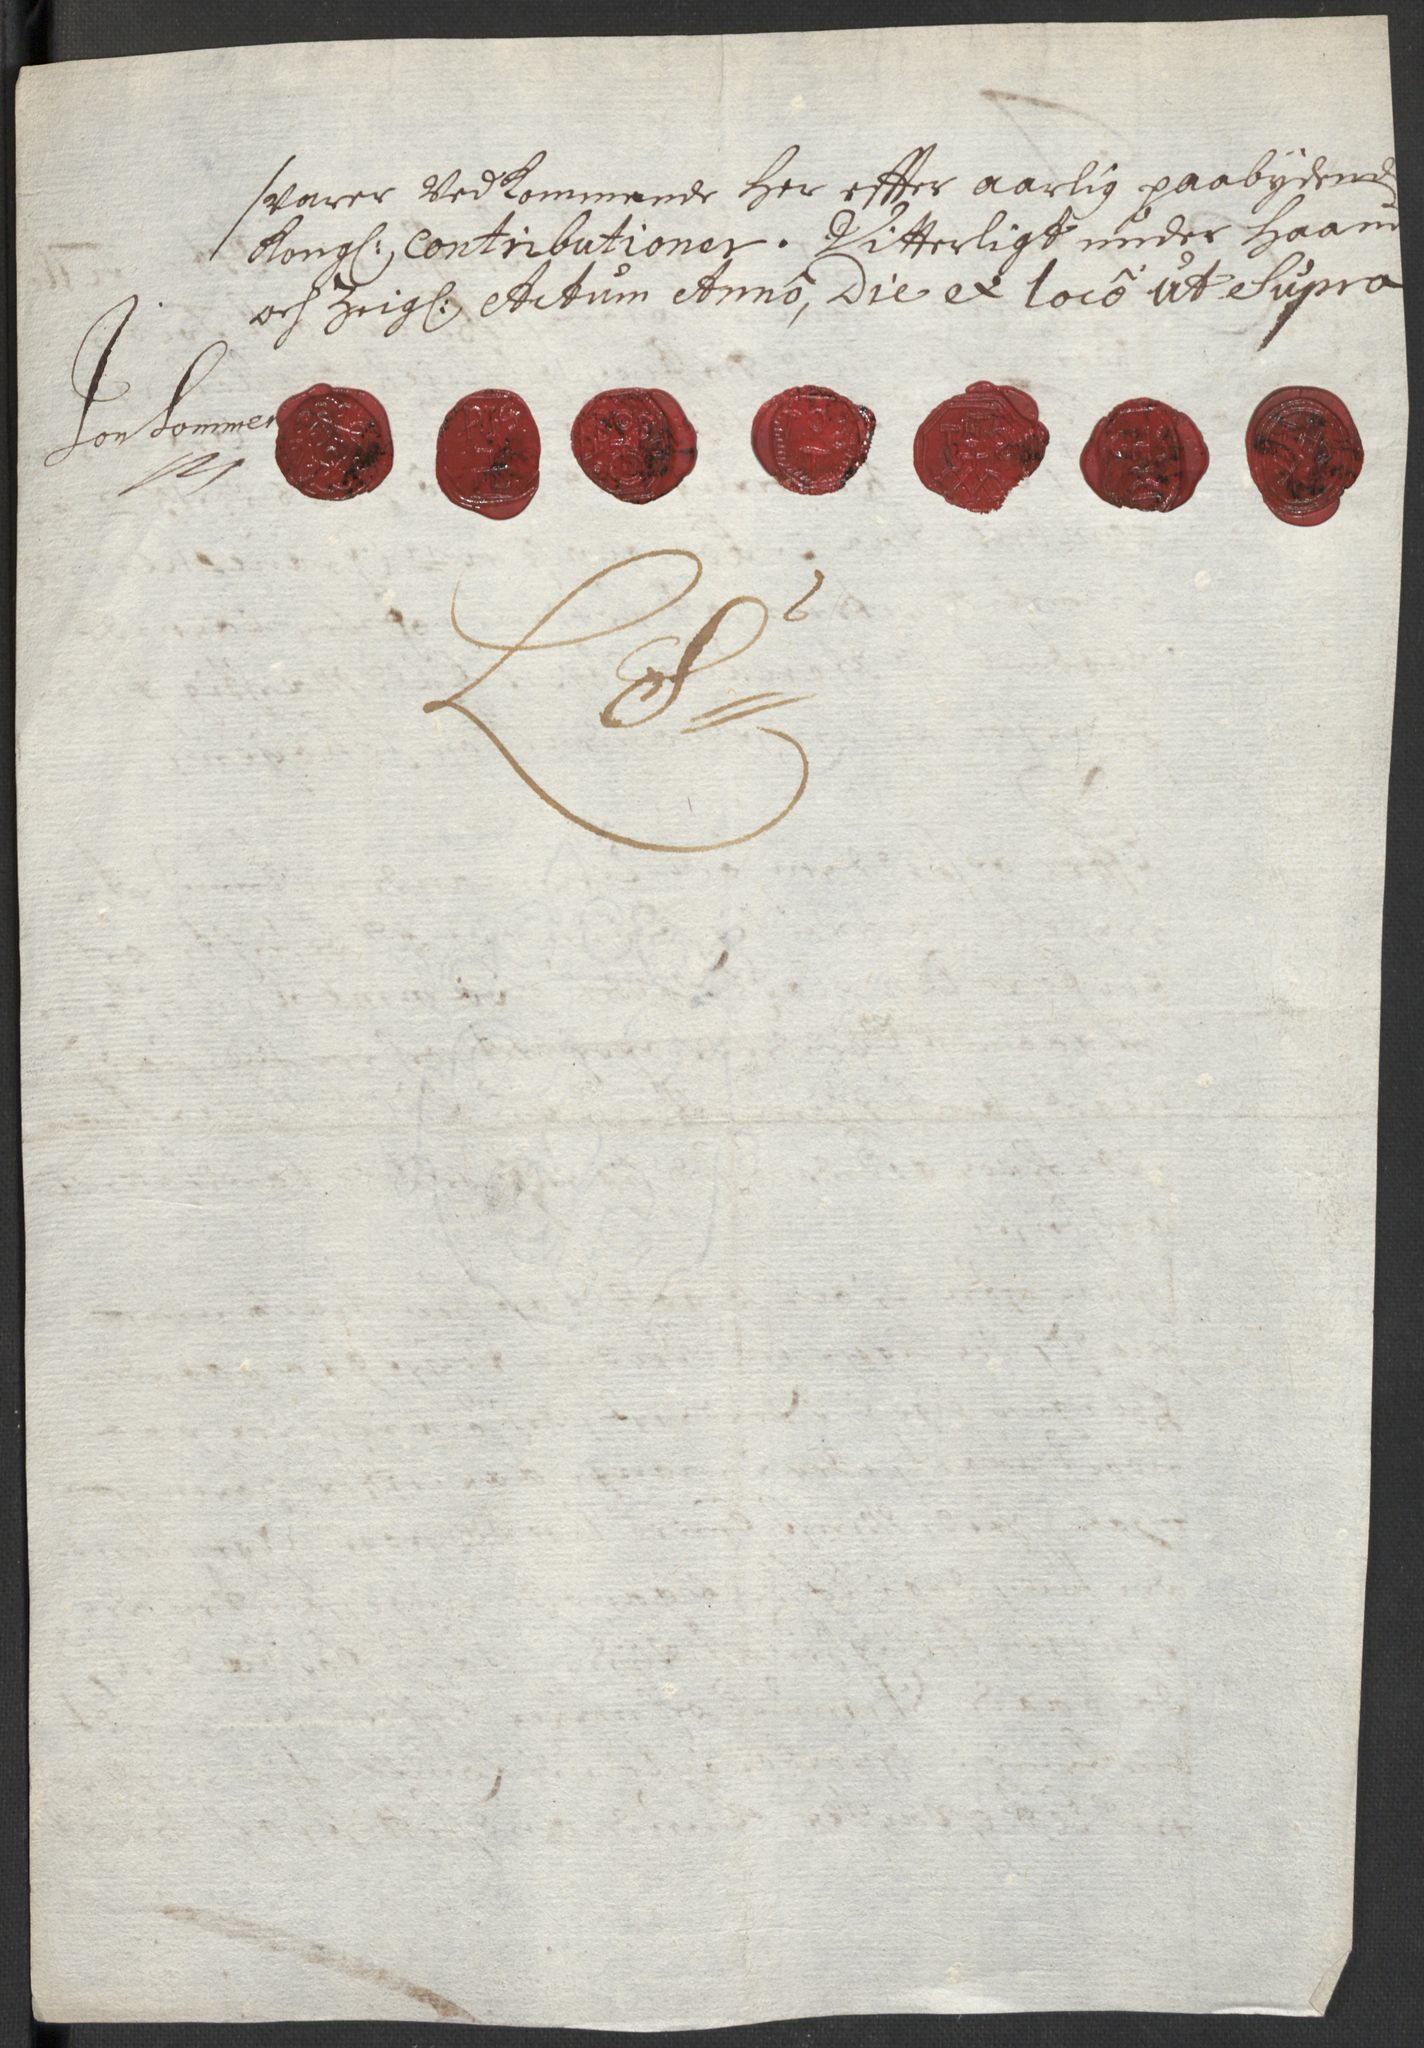 svarer Vedkommende her effter aarlig paabydende
Kongl: Contributioner. Vitterligt under haand
och Zeigl: Actum Anno, Die et loco ut Supra
Jon Sommer
LS